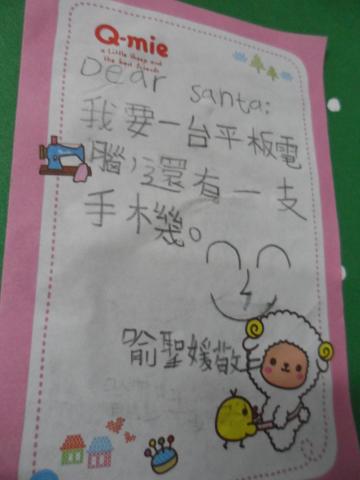 Q-mie
a little sheep and
the best friends
Dear santa:
我要一台平板電
腦,還有一支
手機。
喻聖媛敬上